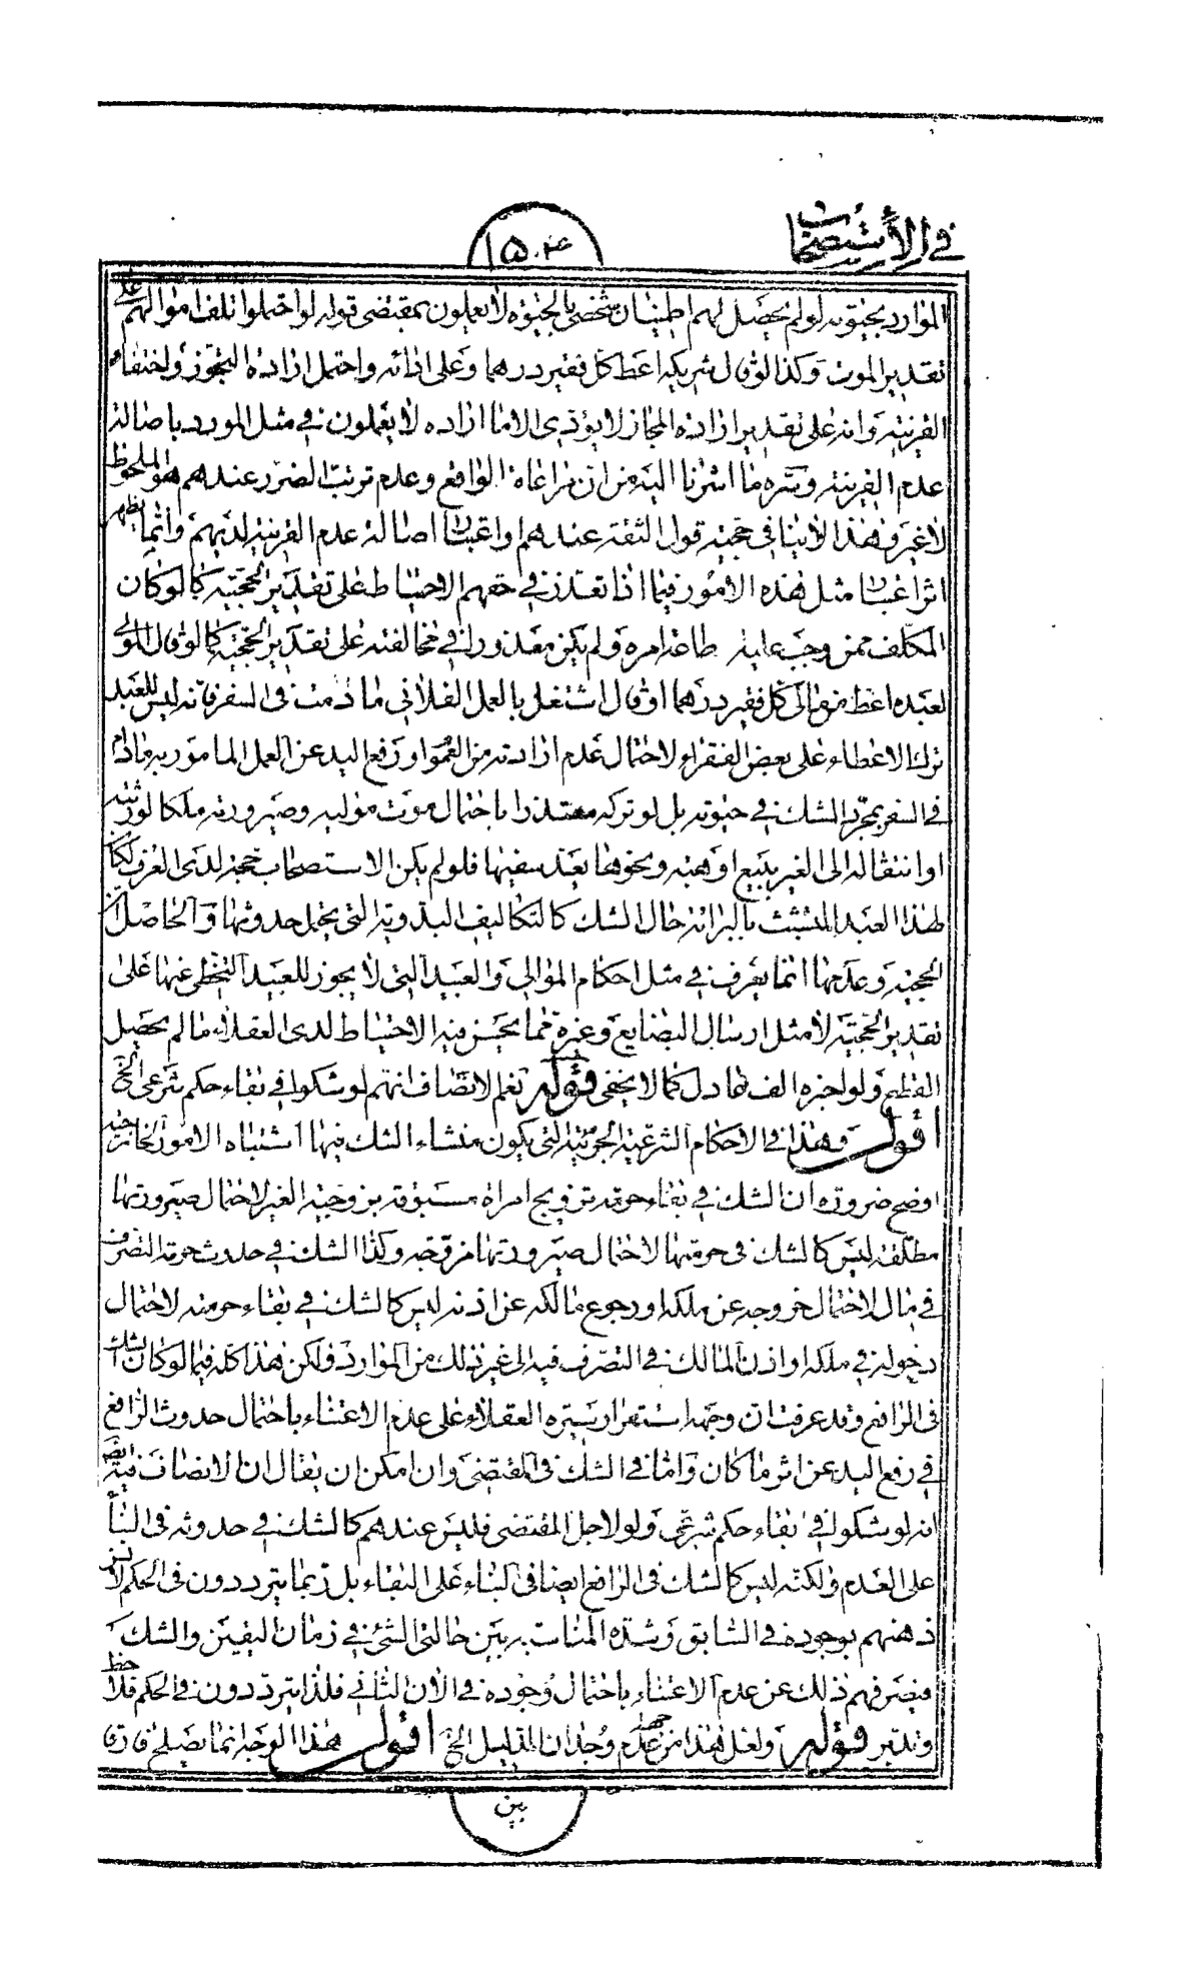 في الاستصحاب
١٥٠٤
الموارد بحيوته لو لم يحصل لهم اطمينان شخصي بالحيوة لا يعملون بمقتضى قوله لو احتملوا تلف اموالهم على
تقدير الموت وكذا لو قال لشريكه اعط كل فقير درهما وعلى ادائه واحتمل ارادة التجوز واختفاء
القرينة وانه على تقدير ارادة المجاز لا يؤدى الا ما اراده لا يعملون في مثل المورد باصالة
عدم القرينة وسره ما اشرنا اليه من ان مراعاة الواقع وعدم ترتب الضرر عندهم هو الملحوظ
لا غير وهذا لا ينافي حجية قول الثقة عندهم واعتبار اصالة عدم القرينة لديهم وانما يظهر
اثر اعتبار مثل هذه الامور فيما اذا تعذر في حقهم الاحتياط على تقدير الحجية كما لو كان
المكلف ممن وجب عليه طاعة امره ولم يكن معذورا في مخالفته على تقدير الحجية كما لو قال المولى
لعبده اعط من مالي كل فقير درهما او قال اشتغل بالعمل الفلاني ما دمت في السفر فانه ليس للعبد
ترك الاعطاء على بعض الفقراء لاحتمال عدم ارادته من العموم او رفع اليد عن العمل المامور به ما دام
في السفر بمجرد الشك في حيوته بل لو تركه معتذرا باحتمال موت موليه وصيرورته ملكا لورثته
او انتقاله الى الغير ببيع او هبة ونحوها يعد سفيها فلو لم يكن الاستصحاب حجة لدى العرف لكان
لهذا العبد التشبث بالبرائة حال الشك كالتكاليف البدوية التي يحتمل حدوثها والحاصل ان
الحجية وعدمها انما يعرف في مثل احكام الموالي والعبيد التي لا يجوز للعبيد التخطي عنها على
تقدير الحجية لا مثل ارسال البضايع وغيره مما يحسن فيه الاحتياط لدى العقلاء ما لم يحصل
القطع ولو اخبره الف عادل كما لا يخفى قوله نعم الانصاف انهم لو شكوا في بقاء حكم شرعي الخ
اقول وهذا في الاحكام الشرعية الجزئية التي يكون منشاء الشك فيها اشتباه الامور الخارجية
اوضح ضرورة ان الشك في بقاء حرمة تزويج امراة مسبوقة بزوجية الغير لاحتمال صيرورتها
مطلقة ليس كالشك في حرمتها لاحتمال صيرورتها مزوجة وكذا الشك في حدوث حرمة التصرف
في مال لاحتمال خروجه عن ملكه او رجوع مالكه عن اذنه ليس كالشك في بقاء حرمته لاحتمال
دخوله في ملكه او اذن المالك في التصرف فيه الى غير ذلك من الموارد ولكن هذا كله فيما لو كان الشك
في الرافع وقد عرفت ان وجهه استقرار سيرة العقلاء على عدم الاعتناء باحتمال حدوث الرافع
في رفع اليد عن اثر ما كان واما في الشك في المقتضي وان امكن ان يقال ان الانصاف فيه ايضا
انه لو شكوا في بقاء حكم شرعي ولو لاجل المقتضى فليس عندهم كالشك في حدوثه في البناء
على العدم ولكنه ليس كالشك في الرافع ايضا في البناء على البقاء بل ربما يترددون في الحكم لانس
ذهنهم بوجوده في السابق وشدة المناسبة بين حالتي الشئ في زمان اليقين والشك
فيصرفهم ذلك عن عدم الاعتناء باحتمال وجوده في الآن الثاني فلذا يترددون في الحكم فلاحظ
وتدبر قوله ولعل هذا من جهة عدم وجدان الدليل الخ اقول هذا الوجه انما يصلح فارقا
بين